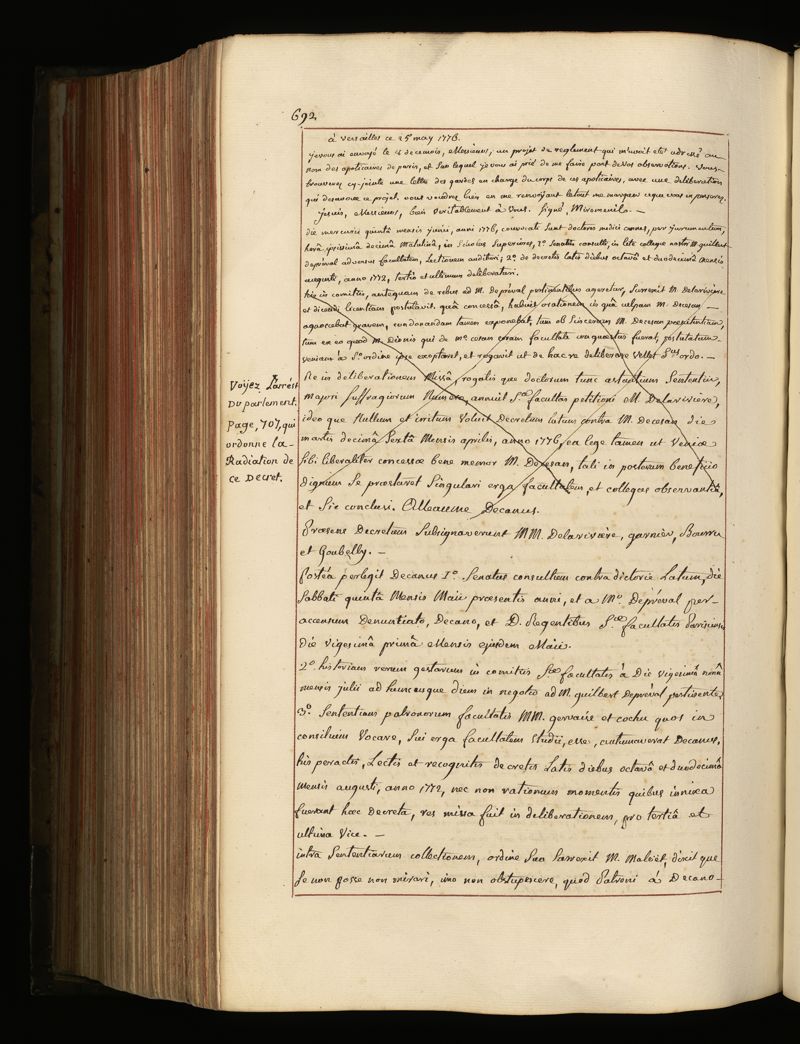 692
à Versailles ce 25 may 1776.
je vous ai envoyé le 14 de ce mois, Messieurs, un projet de reglement qui m'avoit eté adressé au
nom des apoticaires de paris, et sur lequel je vous ai prié de me faire part de vos observations. Vous
trouverez cy-jointe une lettre des gardes en charge du corps de ces apoticaires, avec une deliberation
qui desavoue ce projet. vous voudrez bien en me renvoyant le tout me marquer ce que vous en penserez.
je suis, Messieurs, bien veritablement à vous. Signé, Miromenil. —
die mercurii quintâ mensis junii, anni 1776, convocati sunt doctores medici omnes, per juramentum,
horâ ipsissimâ decimâ matutinâ, in Scholas Superiores, 1º Senatus consulti, in lite collegæ nostri M. guilbert
depréval adversus facultatem, Lectionem audituri; 2º de decretis latis diebus octavâ et duodecimâ mensis
augusti, anno 1772, tertio et ultimum deliberaturi.
his in comitiis, antequam de rebus ad M. Depréval pertinentibus ageretur, Surrexit M. Delarivière
et dicendi licentiam postulavit. quâ concessâ, habuit orationem in quâ culpam M. Decesan —
agnoscebat gravem, condonandam tamen exponebat, tum ob Sinceram M. Decesan pœnitentiam,
tum en eo quod M. Dionis qui de mº. cesan coram facultate conquestus fuerat, postulatum
veniam à Sº. ordine ipse exoptaret, et rogavit ut de hac re deliberare Vellet Sᵘˢ ordo. —
Re in deliberationem Missâ, rogatisque doctorum tunc astantium Sententiis,
majori Suffragiorum Numero, annuit Sᵃ facultas petitioni M. Delarivière,
ideoque Nullum et irritum Voluit Decretum latum contra M. Decesan die
martis decimâ Sextâ Mensis aprilis, anno 1776, ea lege tamen ut Veniæ
Sibi liberaliter concessæ bene memor M. Decesan, tali in posterum beneficio
dignum Se præstaret Singulari erga facultatem, et collegas observantiâ,
et Sic conclusi. Alleaume Decanus.
Voyez L'arrêst
Du parlement.
page, 707, qui
ordonne la
Radiation de
ce Decret.
Præsens Decretum Subsignaverunt MM. Delarivière, garnier, Bourru
et Goubelly. —
Posteà perlegit Decanus 1º. Senatus consultum contradictorie Latum, die
Sabbati quintâ Mensis Maii præsentis anni, et a Mº. Depréval per-
accensum Denuntiato, Decano, et D. Regentibus Sᵃᵉ facultatis Parisiensis
Die vigesimâ primâ Mensis ejusdem Maii.
2º. historiam rerum gestarum in comitiis Sᵃᵉ facultatis à Die vigesimâ nonâ
mensis julii ad huncusque diem in negotio ad M. guilbert Depréval pertinente,
3º. Sententiam patronorum facultatis MM. gervaise et cochu quos in
consilium Vocare, Sui erga facultatem Studii, esse, autumaverat Decanus.
his peractis, Lectis et recognitis decretis Latis diebus octavâ et duodecimâ
mensis augusti, anno 1772, nec non rationum momentis quibus innixa
fuerant hæc Decreta, res missa fuit in deliberationem, pro tertiâ et
ultima Vice. —
intrà Sententiarum collectionem, ordine Suo Surrexit M. Maloët, dixitque
Se non posse non mirari, imo non obstupescere, quod Patroni à Decano —